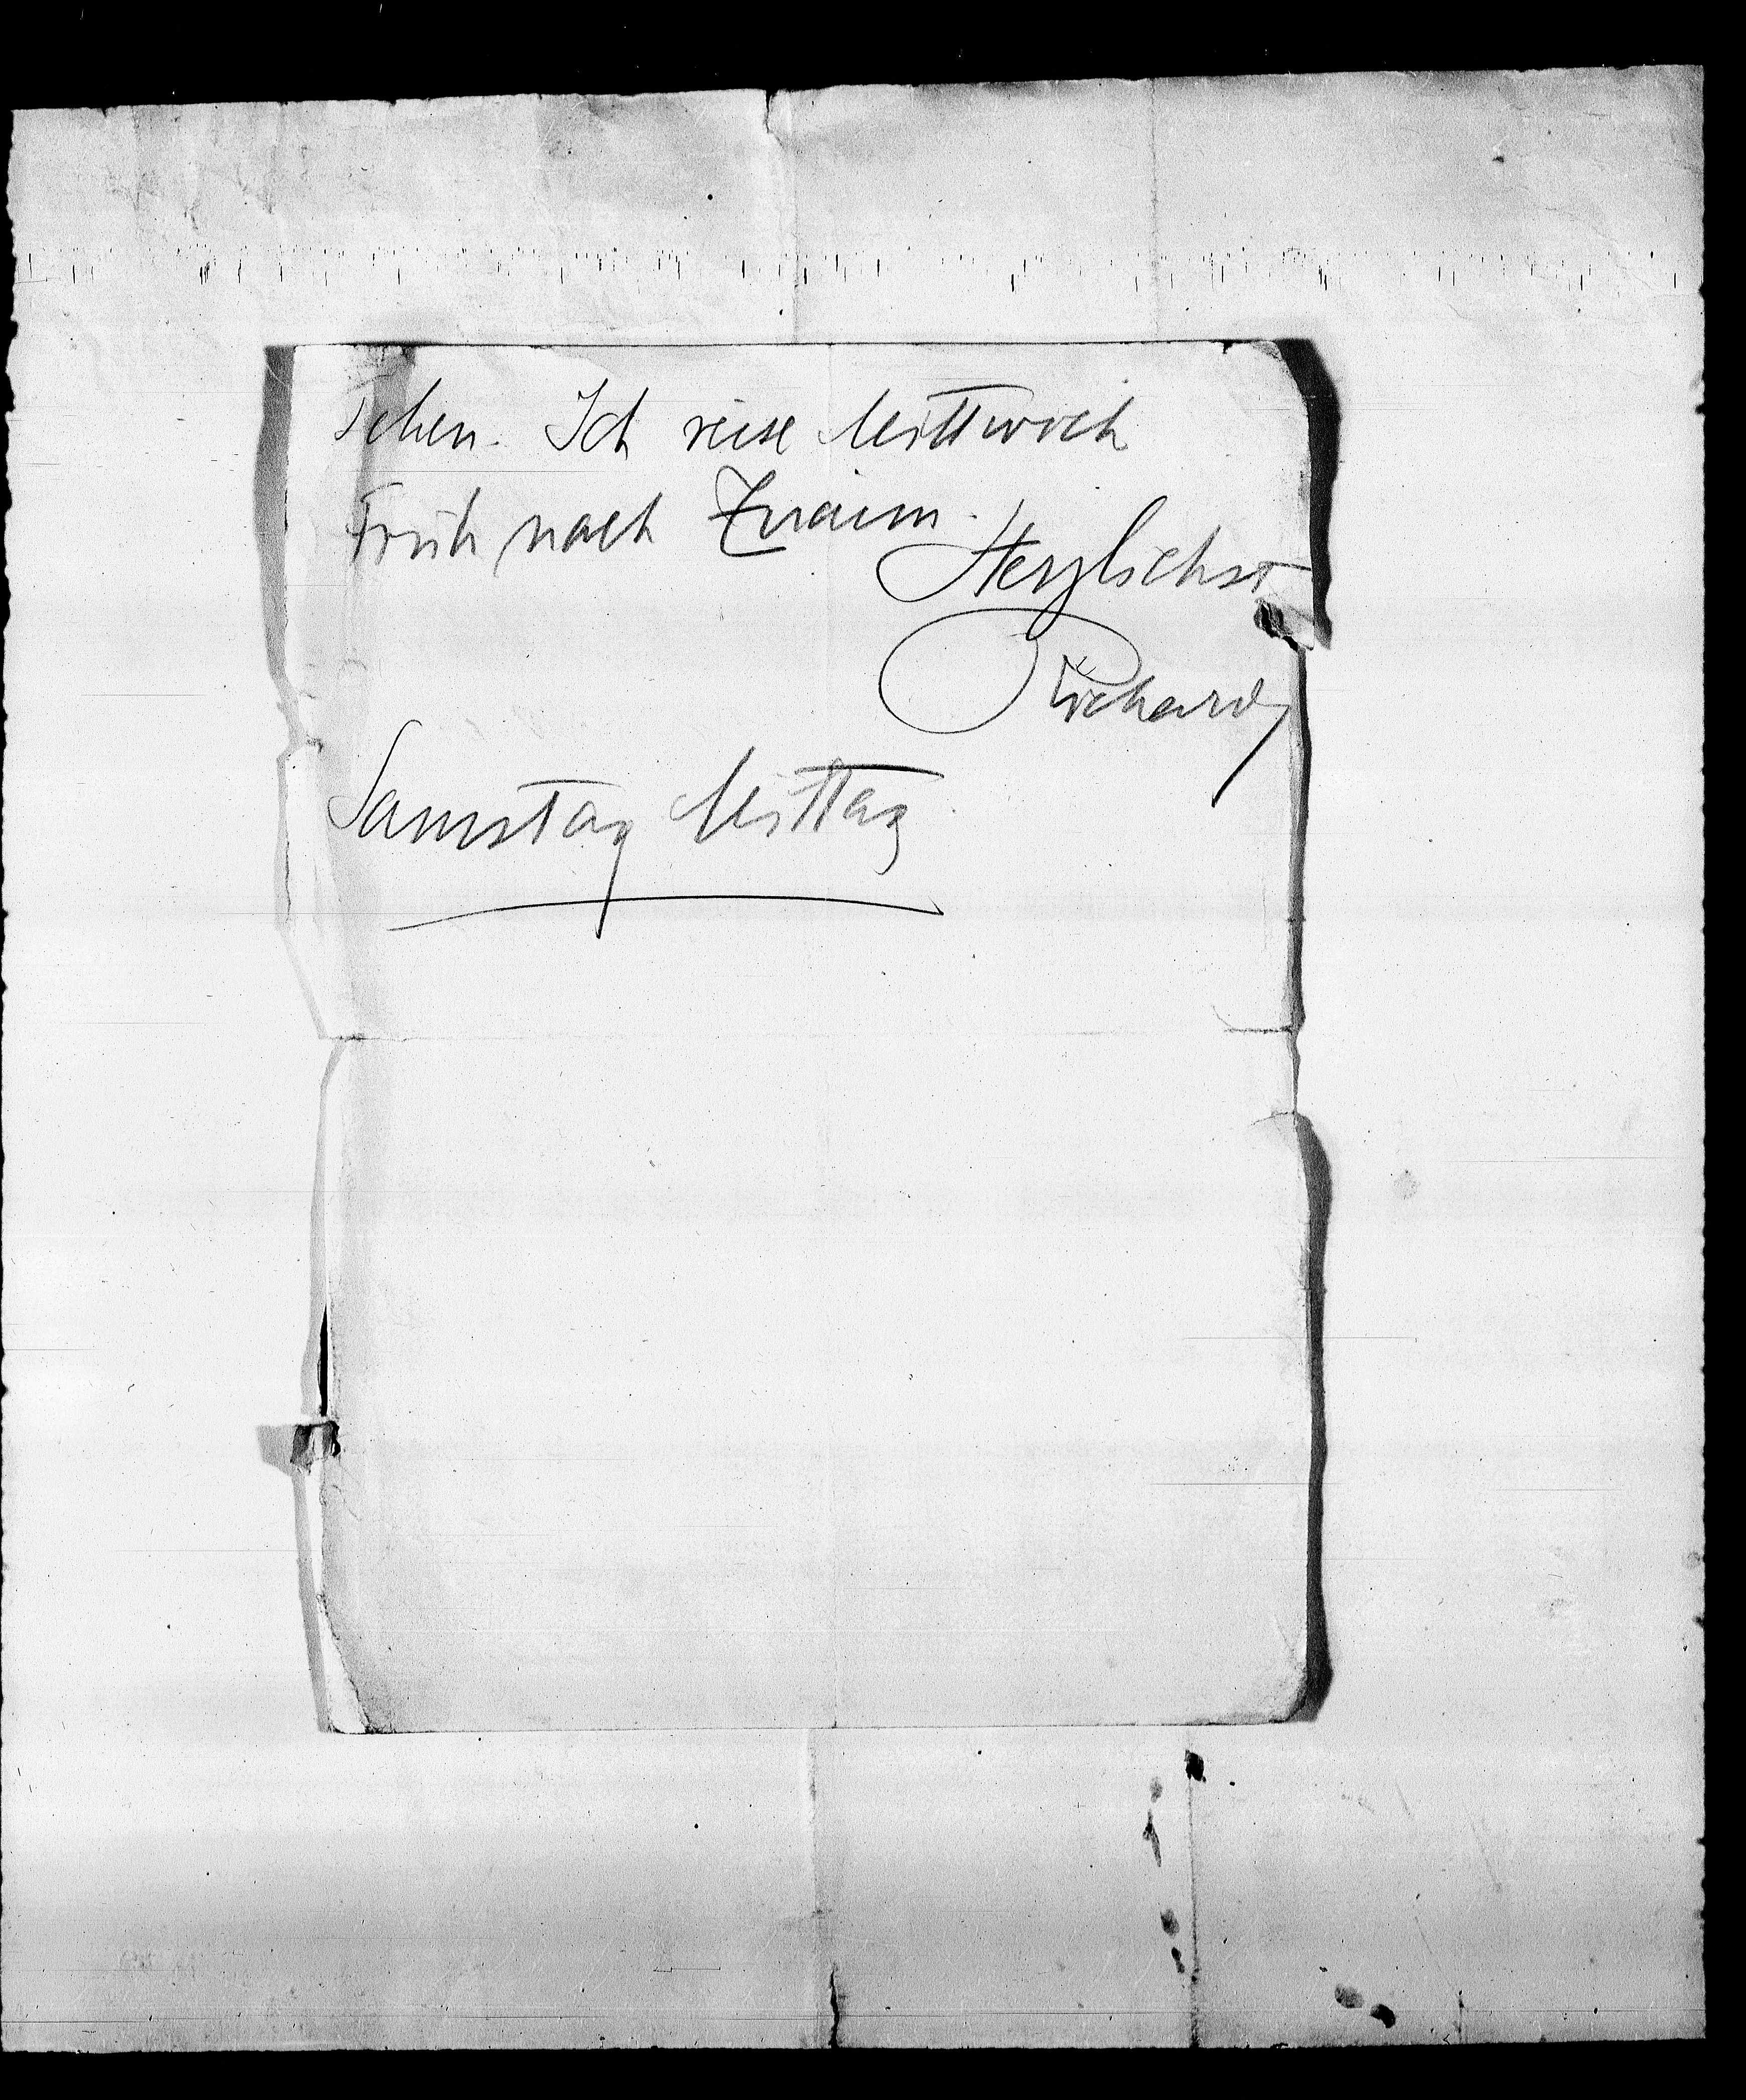 sehen. Ich reise Mittwoch
Früh nach Znaim.
Herzlichst
Richard
Samstag Mittag